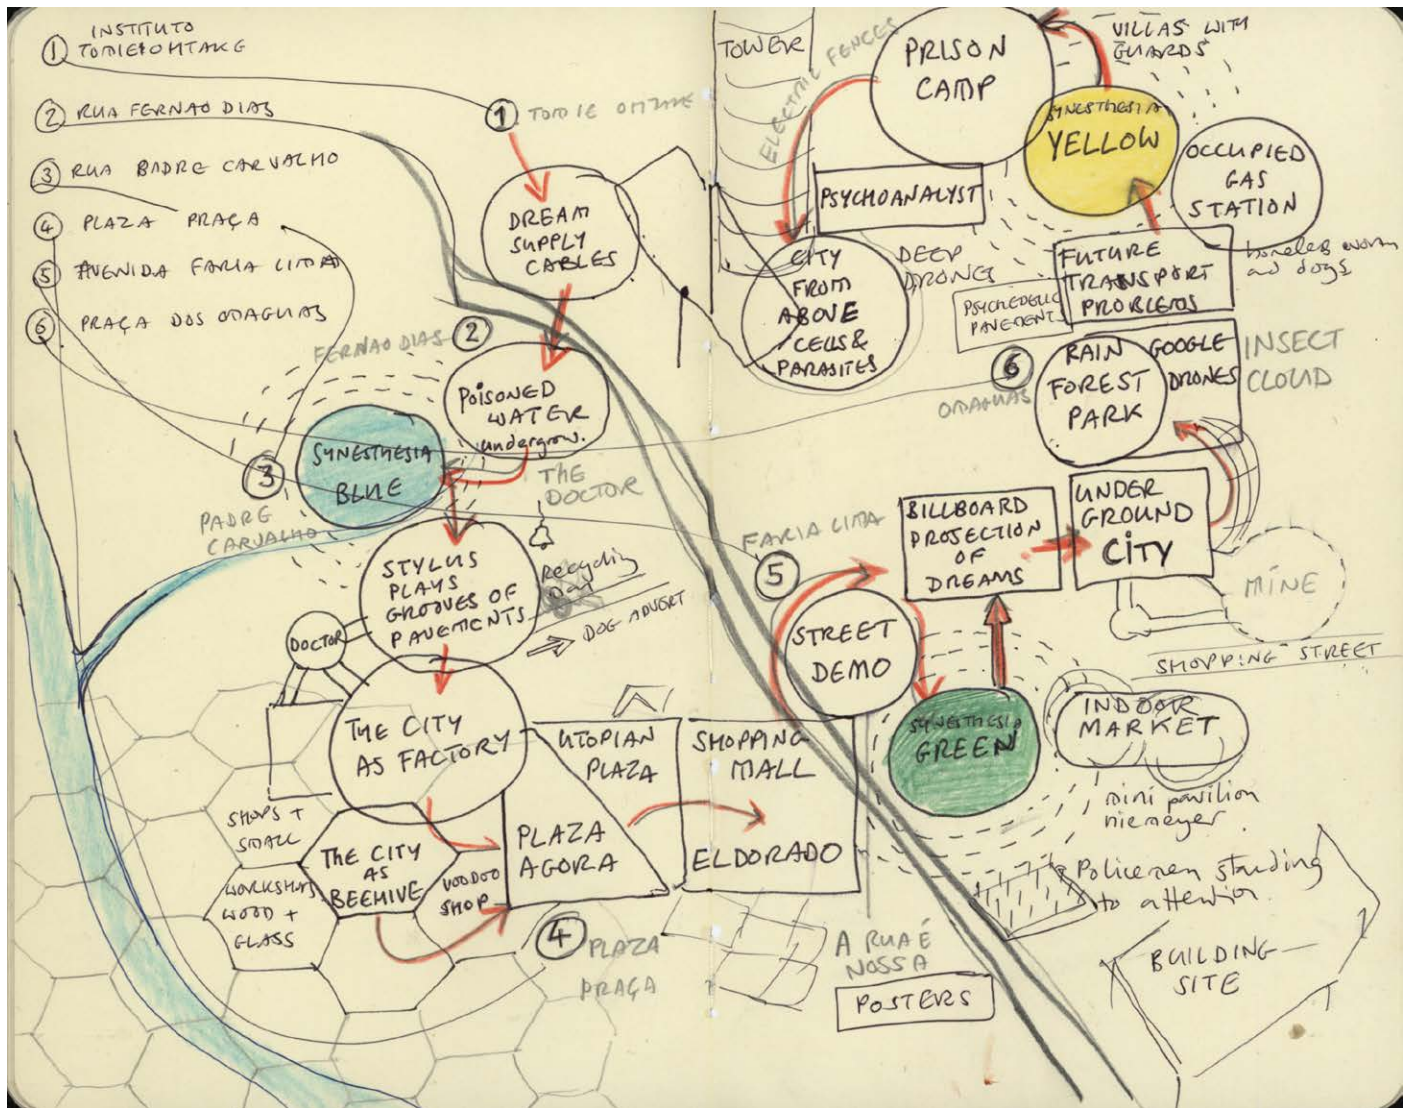 INSTITUTO
① TOMIE OHTAKE
② RUA FERNAO DIAS
③ RUA BADRE CARVALHO
④ PLAZA PRAÇA
⑤ AVENIDA FARIA LIMA
⑥ PRAÇA DOS OMAGUAS
① TOMIE OHTAKE
DREAM
SUPPLY
CABLES
FERNAO DIAS ②
POISONED
WATER
undergrow.
SYNESTHESIA
BLUE
③
PADRE
CARVALHO
THE
DOCTOR
STYLUS
PLAYS
GROOVES OF
PAVEMENTS
Recycling
Day
DOG ADVERT
DOCTOR
THE CITY
AS FACTORY
SHOPS +
SMALL
WORKSHOPS
WOOD +
GLASS
THE CITY
AS
BEEHIVE
VOODOO
SHOP
UTOPIAN
PLAZA
PLAZA
AGORA
④ PLAZA
PRAÇA
SHOPPING
MALL
ELDORADO
TOWER
ELECTRIC FENCES
PRISON
CAMP
VILLAS WITH
GUARDS
SYNESTHESIA
YELLOW
OCCUPIED
GAS
STATION
and dogs
PSYCHOANALYST
CITY
FROM
ABOVE
CELLS &
PARASITES
DEEP
DRONES
PSYCHEDELIC
PAVEMENTS
FUTURE
TRANSPORT
PROBLEMS
⑥
OMAGUAS
RAIN
FOREST
PARK
GOOGLE
DRONES
INSECT
CLOUD
FARIA LIMA
⑤
BILLBOARD
PROJECTION
OF
DREAMS
UNDER
GROUND
CITY
MINE
SHOPPING STREET
STREET
DEMO
SYNESTHESIA
GREEN
INDOOR
MARKET
mini pavilion
niemeyer
Policemen standing
to attention
A RUA É
NOSSA
POSTERS
BUILDING
SITE